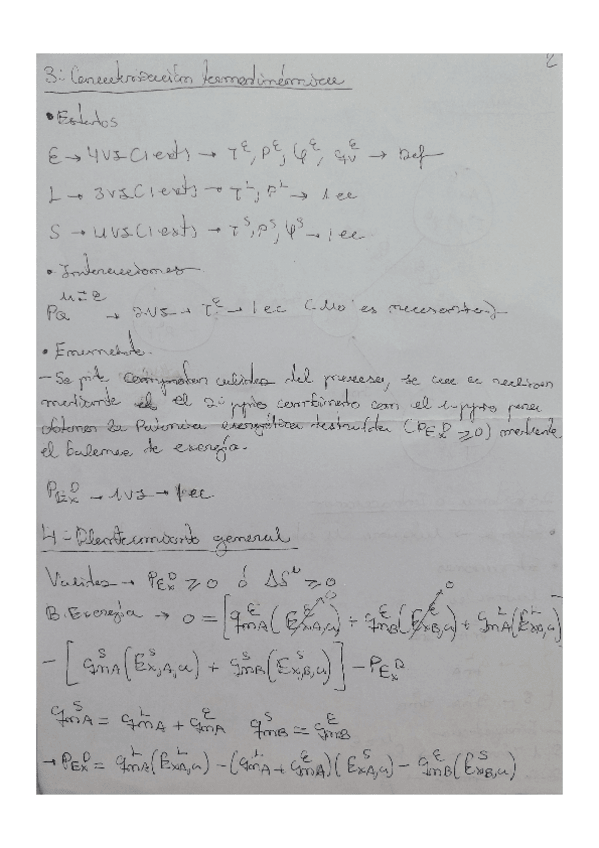 2
3.- Caracterización termodinámica
• Estados
E → 4 vs (1 ext) → T^E, P^E, φ^E, q_v^E → Def
L → 3 vs (1 ext) → T^L, P^L → 1 ec
S → 4 vs (1 ext) → T^S, P^S, φ^S → 1 ec.
• Interacciones
P_Q → 2 vs → T → 1 ec (No es necesario)
• Enunciado.
- Se pide comprobar validez del proceso, se
mediante el 2º ppio combinado con el 1 ppio para
obtener la Potencia exergética destruida (P_Ex^D ≥ 0) mediante
el balance de exergía.
P_Ex^D → 1 vs → 1 ec.
4.- Planteamiento general
Validez → P_Ex^D ≥ 0 ó ΔS^u ≥ 0
B. Exergía → 0 = [q_mA^E (E_xA,u^E)→0 + q_mB^E (E_xB,u^E)→0 + q_mA^L (E_xA,u^L)]
- [q_mA^S (E_x,A,u^S) + q_mB^S (E_x,B,u^S)] - P_Ex^D
q_mA^S = q_mA^L + q_mA^E q_mB^S = q_mB^E
→ P_Ex^D = q_mA^L (E_xA,u^L) - (q_mA^L + q_mA^E)(E_xA,u^S) - q_mB^E (E_xB,u^S)